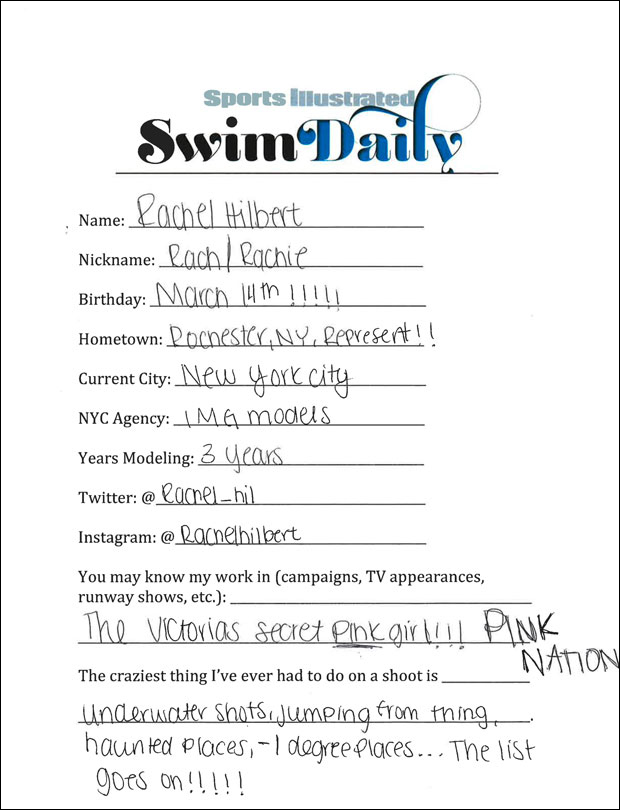 Sports Illustrated
Swim Daily
Name: Rachel Hilbert
Nickname: Rach/Rachie
Birthday: March 14th !!!!!
Hometown: Rochester, NY, Represent!!
Current City: New York city
NYC Agency: IMG models
Years Modeling: 3 years
Twitter: @ Rachel_hil
Instagram: @ Rachelhilbert
You may know my work in (campaigns, TV appearances,
runway shows, etc.):
The Victorias secret Pink girl!!! PINK
NATION
The craziest thing I've ever had to do on a shoot is
underwater shots, jumping from thing,
haunted places, -1 degree places... The list
goes on!!!!!